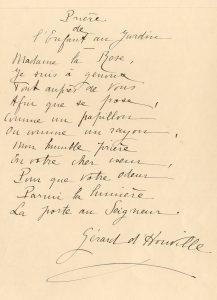 Prière
de
l'Enfant au Jardin
Madame la Rose,
Je suis à genoux
Tout auprès de vous
Afin que se pose,
Comme un papillon
Ou comme un rayon,
Mon humble prière
En votre cher cœur,
Pour que votre odeur
Parmi la lumière
La porte au Seigneur.
Gérard d'Houville